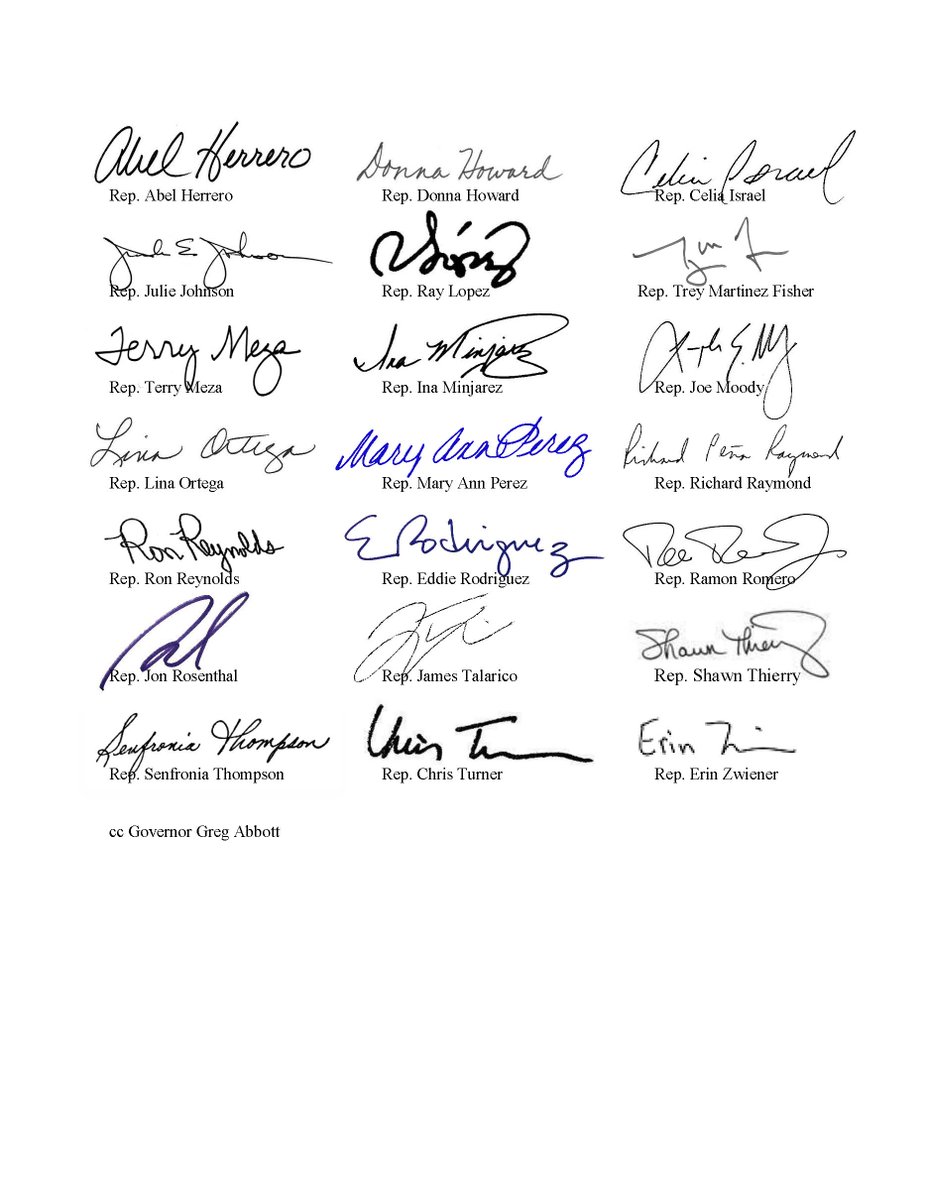 Abel Herrero Donna Howard Celia Israel
Rep. Abel Herrero Rep. Donna Howard Rep. Celia Israel
E Johnson
Rep. Julie Johnson Rep. Ray Lopez Rep. Trey Martinez Fisher
Terry Meza Ina Minjarez
Rep. Terry Meza Rep. Ina Minjarez Rep. Joe Moody
Lina Ortega Mary Ann Perez Richard Peña Raymond
Rep. Lina Ortega Rep. Mary Ann Perez Rep. Richard Raymond
Ron Reynolds E Rodriguez
Rep. Ron Reynolds Rep. Eddie Rodriguez Rep. Ramon Romero
Shawn Thierry
Rep. Jon Rosenthal Rep. James Talarico Rep. Shawn Thierry
Senfronia Thompson Chris Erin
Rep. Senfronia Thompson Rep. Chris Turner Rep. Erin Zwiener
cc Governor Greg Abbott